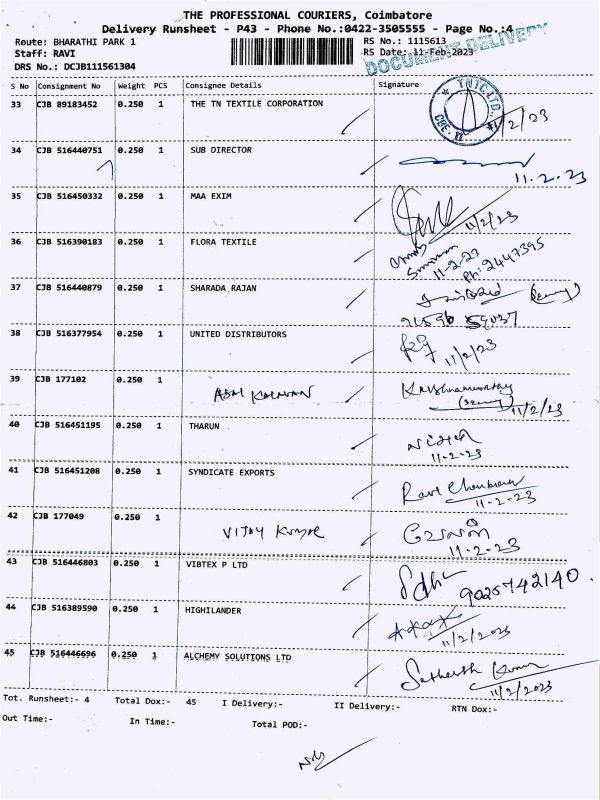 THE PROFESSIONAL COURIERS, Coimbatore
Delivery Runsheet - P43 - Phone No.:0422-3505555 - Page No.:4
Route: BHARATHI PARK 1 RS No.: 1115613
Staff: RAVI RS Date: 11-Feb-2023
DOCUMENT DELIVERY
DRS No.: DCJB111561304
S No Consignment No Weight PCS Consignee Details Signature
33 CJB 89183452 0.250 1 THE TN TEXTILE CORPORATION
11/2/23
34 CJB 516440751 0.250 1 SUB DIRECTOR
11.2.23
35 CJB 516450332 0.250 1 MAA EXIM
11/2/23
36 CJB 516390183 0.250 1 FLORA TEXTILE
11-2-23
Ph: 2447395
37 CJB 516440879 0.250 1 SHARADA RAJAN
38 CJB 516377954 0.250 1 UNITED DISTRIBUTORS
11/2/23
39 CJB 177102 0.250 1 Krishnamoorthy
11/2/23
40 CJB 516451195 0.250 1 THARUN
11-2-23
41 CJB 516451208 0.250 1 SYNDICATE EXPORTS
11-2-23
42 CJB 177049 0.250 1 VIJAY Kumar
11-2-23
43 CJB 516446803 0.250 1 VIBTEX P LTD
9025742140.
44 CJB 516389590 0.250 1 HIGHILANDER
11/2/2023
45 CJB 516446696 0.250 1 ALCHEMY SOLUTIONS LTD Satheesh Kumar
11/2/2023
Tot. Runsheet:- 4 Total Dox:- 45 I Delivery:- II Delivery:- RTN Dox:-
Out Time:- In Time:- Total POD:-